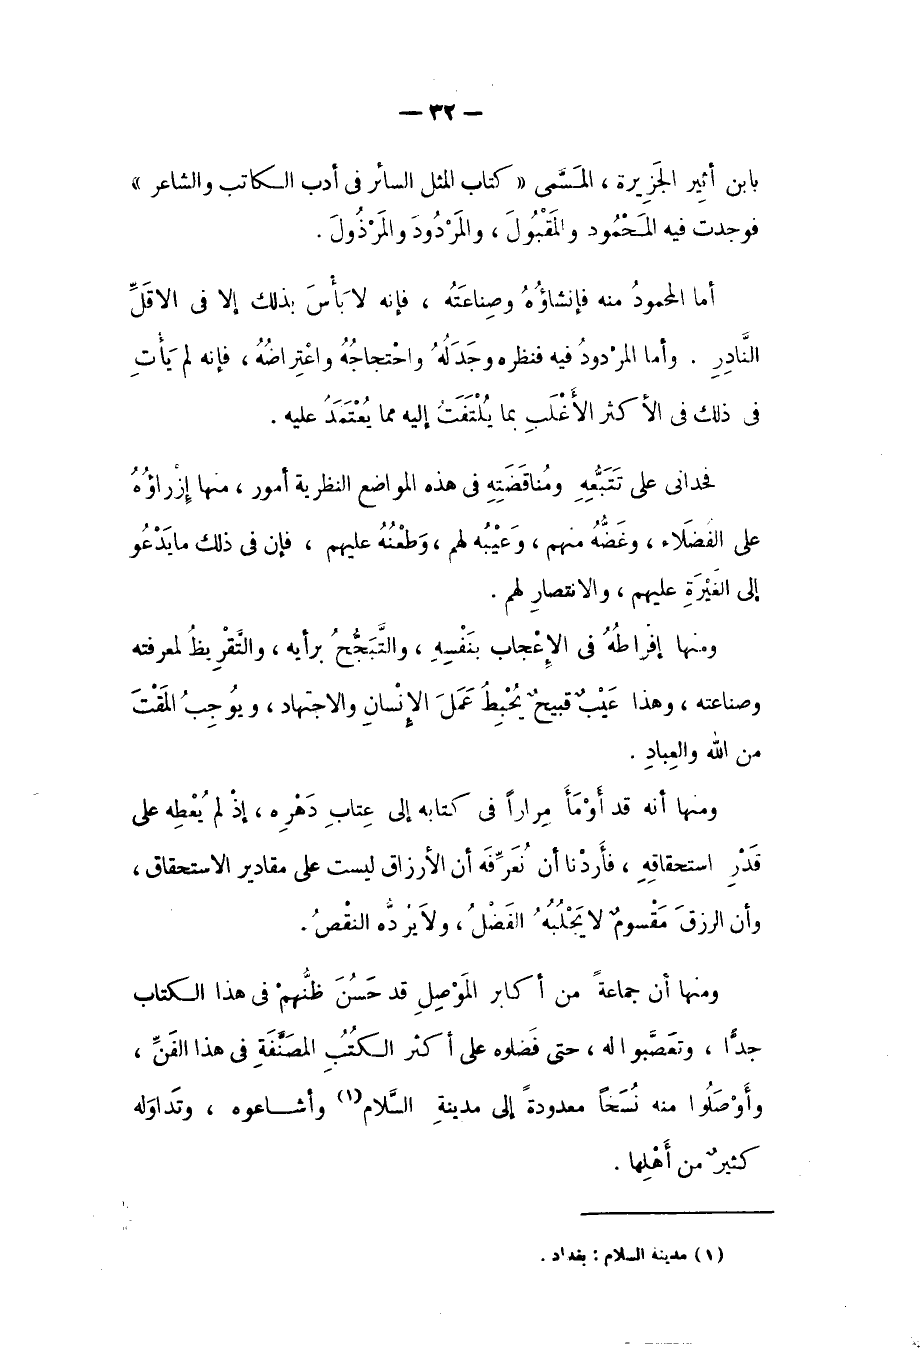 — ٣٢ —
بابن أثير الجَزِيرة ، المَسَّمى « كتاب المثل السائر فى أدب الـكاتب والشاعر »
فوجدت فيه المَحْمُود والمَقْبُولَ ، والمَرْدُودَ والمَرْذُولَ .
أما المحمودُ منه فإنشاؤُهُ وصِناعَتُه ، فإنه لا بَأْسَ بذلك إلا فى الاقَلِّ
النَّادِرِ . وأما المرْدودُ فيه فنظره وجَدَلُهُ واحْتجاجُهُ واعْتِراضُهُ ، فإنه لم يَأْتِ
فى ذلك فى الأكثر الأَغْلَبِ بما يُلْتَفَتُ إليه مما يُعْتَمَدُ عليه .
فحدانى على تَتَبُّعِهِ ومُناقَضَتِهِ فى هذه المواضع النظرية أمور ، منها إزْراؤُهُ
على الفُضَلَاء ، وغَضُّهُ منهم ، وعَيْبُه لهم ، وَطَعْنُهُ عليهم ، فإن فى ذلك ما يَدْعُو
إلى الغَيْرَةِ عليهم ، والانتصارِ لهم .
ومنها إفراطُهُ فى الإعْجاب بنَفْسِهِ ، والتَّبَجُّحُ برأيه ، والتَّقْرِيظُ لمعرفته
وصناعته ، وهذا عَيْبٌ قبيحٌ يُحْبِطُ عَمَلَ الإنْسانِ والاجتهاد ، ويُوجِبُ المَقْتَ
من الله والعِبادِ .
ومنها أنه قد أَوْمَأَ مِراراً فى كتابه إلى عِتابِ دَهْرِه ، إذْ لم يُعْطِه على
قَدْرِ استحقاقِهِ ، فأَردْنا أن نُعَرِّفَه أن الأرزاق ليست على مقادير الاستحقاق ،
وأن الرزقَ مَقْسومٌ لا يَجْلُبُهُ الفَضْلُ ، ولا يَرُدُّه النقْصُ .
ومنها أن جماعةً من أكابر المَوْصِلِ قد حَسُنَ ظنُّهمْ فى هذا الـكتاب
جدًّا ، وتعَصَّبوا له ، حتى فضلوه على أكثر الـكُتُبِ المصَنَّفَةِ فى هذا الفَنِّ ،
وأَوْصَلُوا منه نُسَخاً معدودةً إلى مدينةِ السَّلام(١) وأشـاعوه ، وتَداوَله
كثيرٌ من أَهْلِها .
(١) مدينة السلام : بغداد .